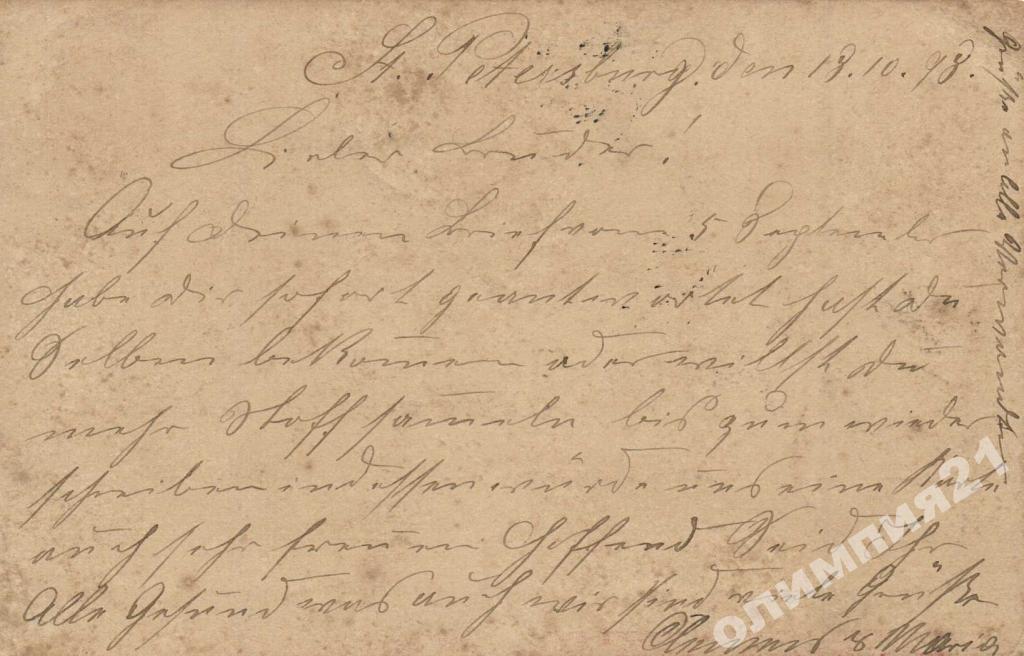 St. Petersburg, den 13.10.93.
Lieber Bruder!
Auf Deinen Brief vom 5 September
habe dir sofort geantwortet hast du
Selben bekommen oder willst du
mehr Stoff sammeln bis zum wieder
schreiben indessen würde uns eine Karte
auch sehr freuen Hoffend Seid Ihr
Alle Gesund was auch wir sind viele Grüße
& Maria
Grüße an Alle
ОЛИМПИЯ21